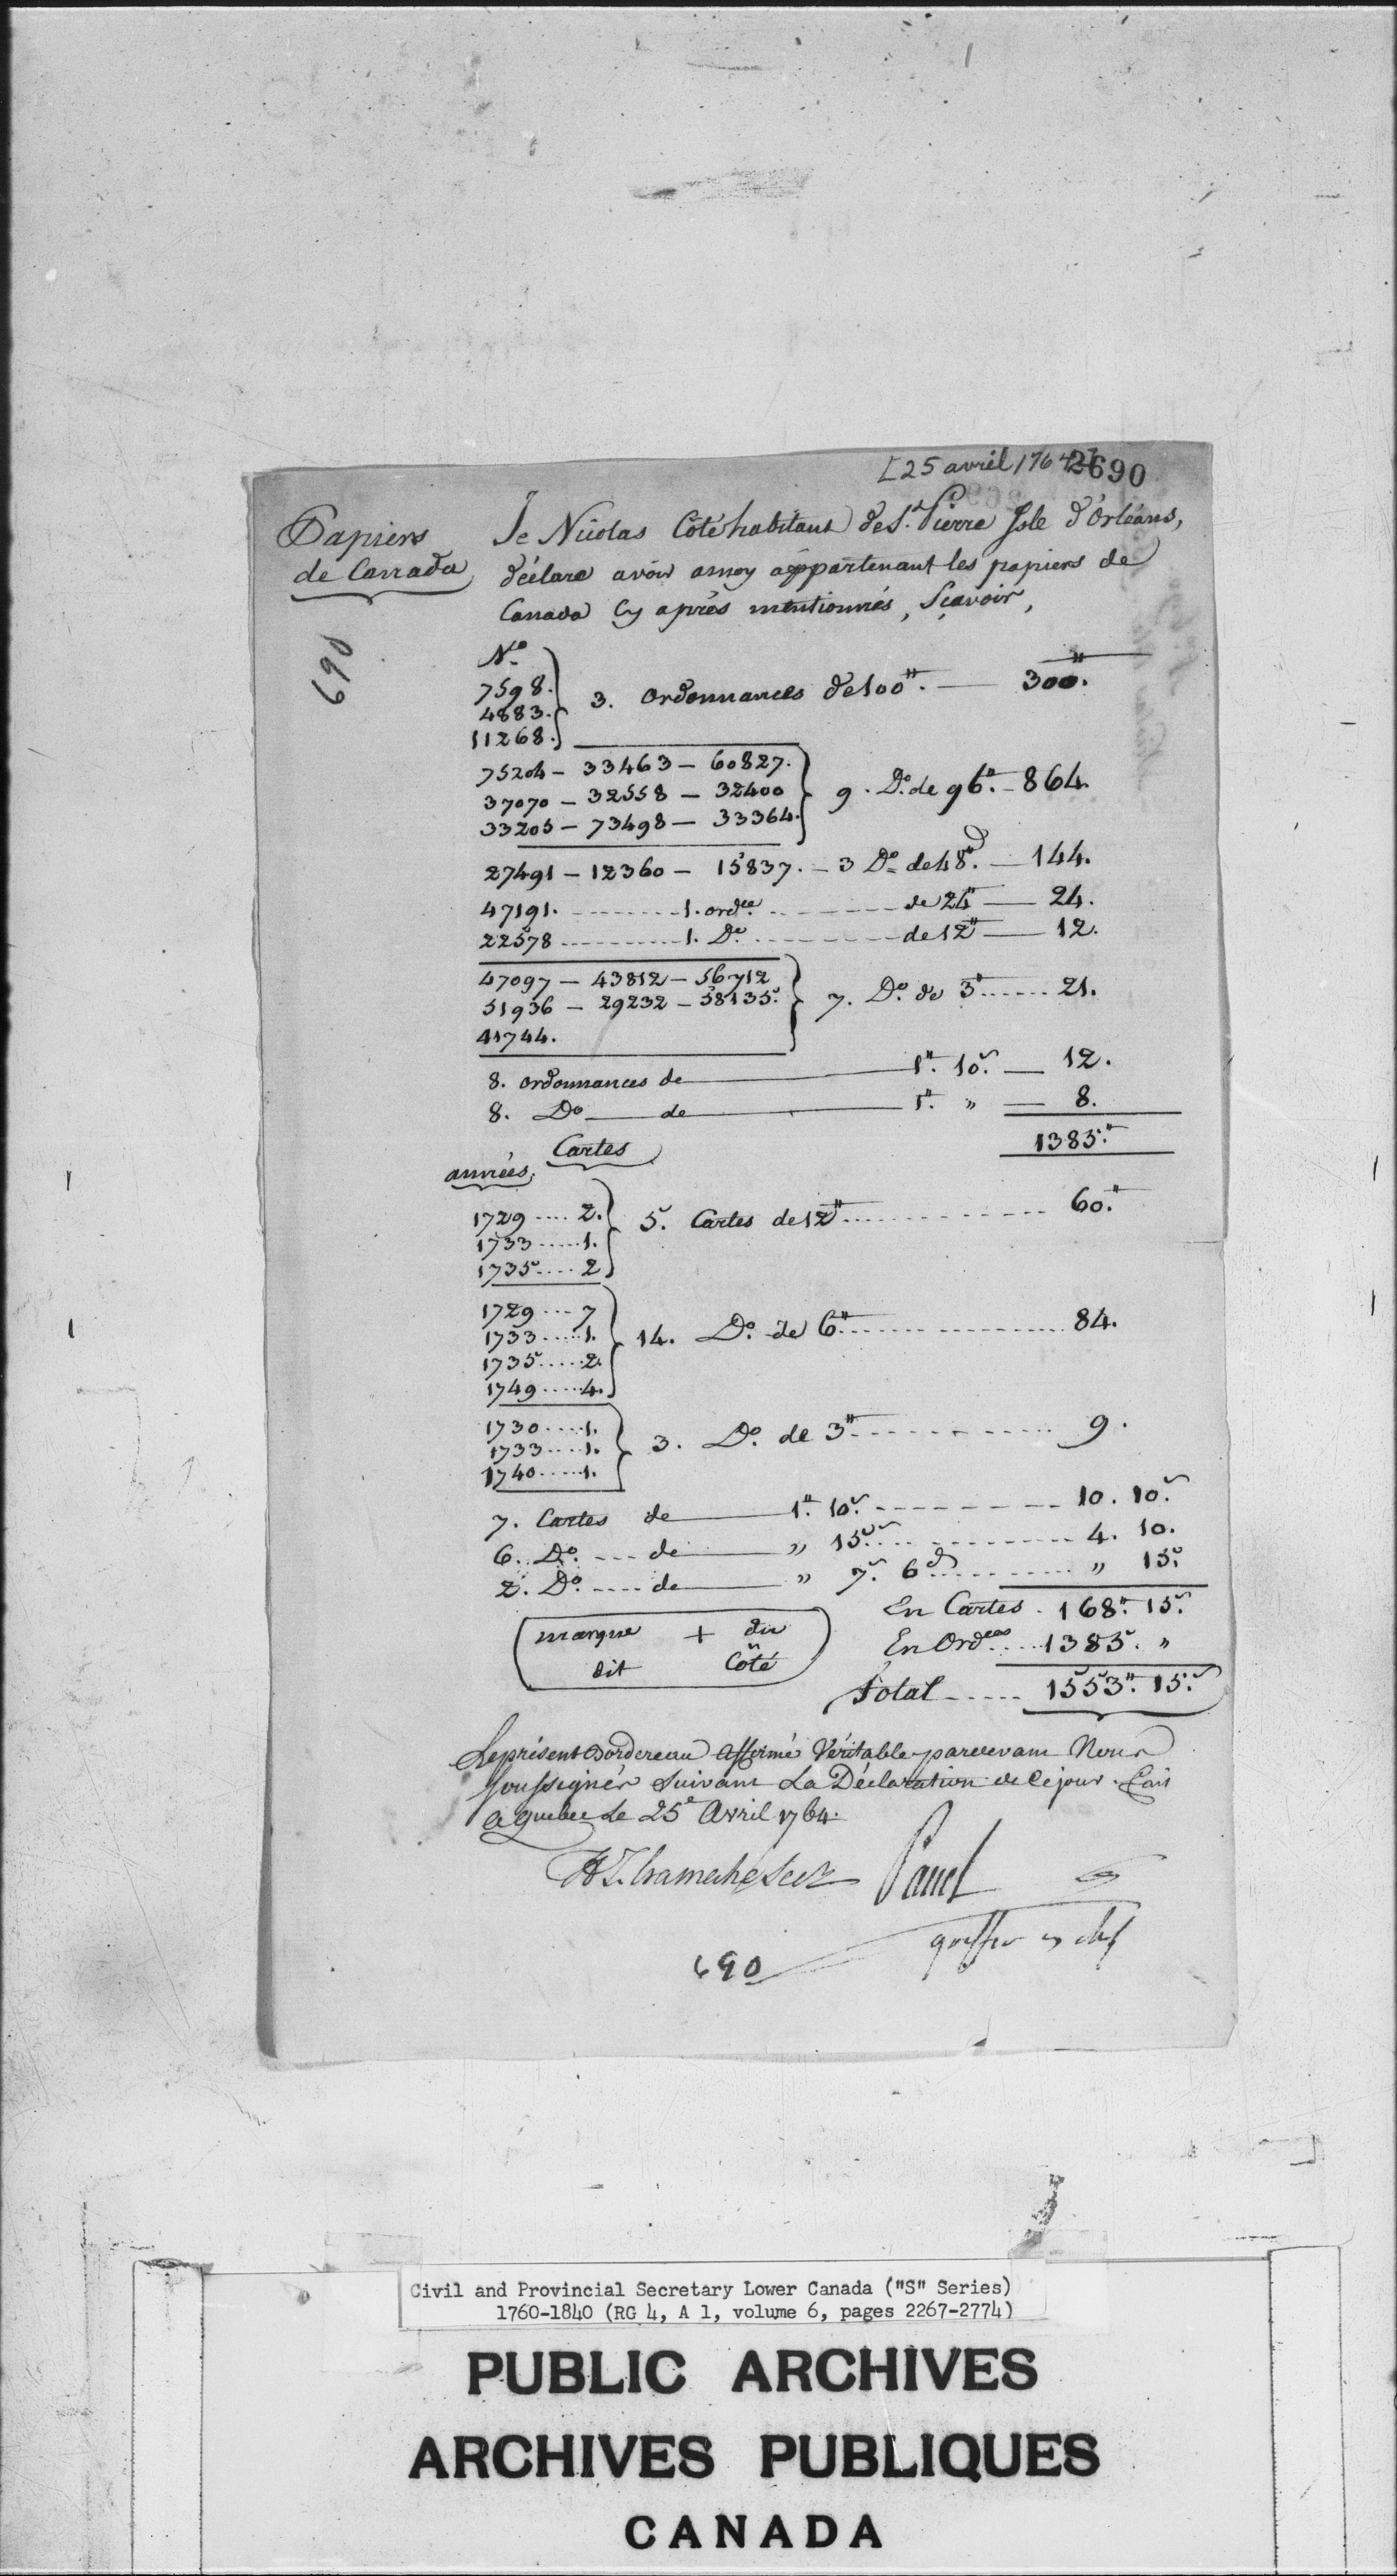 [25 avril 1764]
2690
Papiers
de Canada
690
Je Nicolas Côté habitant de St. Pierre Isle d'Orléans,
déclare avoir amoy appartenant les papiers de
Canada Cy après mentionnés, Sçavoir,
No.
7598.
4883.
11268.
3. Ordonnances de 100tt. — 300tt.
75204 – 33463 – 60827.
37070 – 32558 – 32400
33205 – 73498 – 33364.
9. Do. de 96tt. – 864.
27491 – 12360 – 15837. – 3 Do. de 48tt. — 144.
47191. --------- 1. ordce. --------- de 24tt — 24.
22578 ---------- 1. Do. --------- de 12tt — 12.
47097 – 43812 – 56712
51936 – 29232 – 58135.
41744.
7. Do. de 3tt ...... 21.
8. ordonnances de — 1tt. 10s. — 12.
8. Do — de — 1tt. " — 8.
1385.tt
Cartes
années.
1729 .... 2.
1733 ..... 1.
1735 .... 2
5. Cartes de 12tt ............ 60.tt
1729 ... 7
1733 ..... 1.
1735 ..... 2.
1749 ..... 4.
14. Do. de 6tt ............ 84.
1730 .... 1.
1733 .... 1.
1740 ..... 1.
3. Do. de 3tt ............ 9.
7. Cartes de — 1.tt 10s. --------- 10. 10s.
6. Do. --- de — " 15s. ............ 4. 10.
2. Do. .... de — " 7s. 6d ......... " 15s.
En Cartes . 168tt. 15s.
marque + du
dit Côté
En Ordces .... 1385. "
Total ..... 1553tt. 15s.
Le présent Bordereau affirmé Véritable pardevant Nous
Soussignés Suivant La Déclaration de Cejour. Fait
a quebec Le 25e Avril 1764.
H T. Cramahé Secr
Panet
greffier en chef
690
Civil and Provincial Secretary Lower Canada ("S" Series)
1760-1840 (RG 4, A 1, volume 6, pages 2267-2774)
PUBLIC ARCHIVES
ARCHIVES PUBLIQUES
CANADA